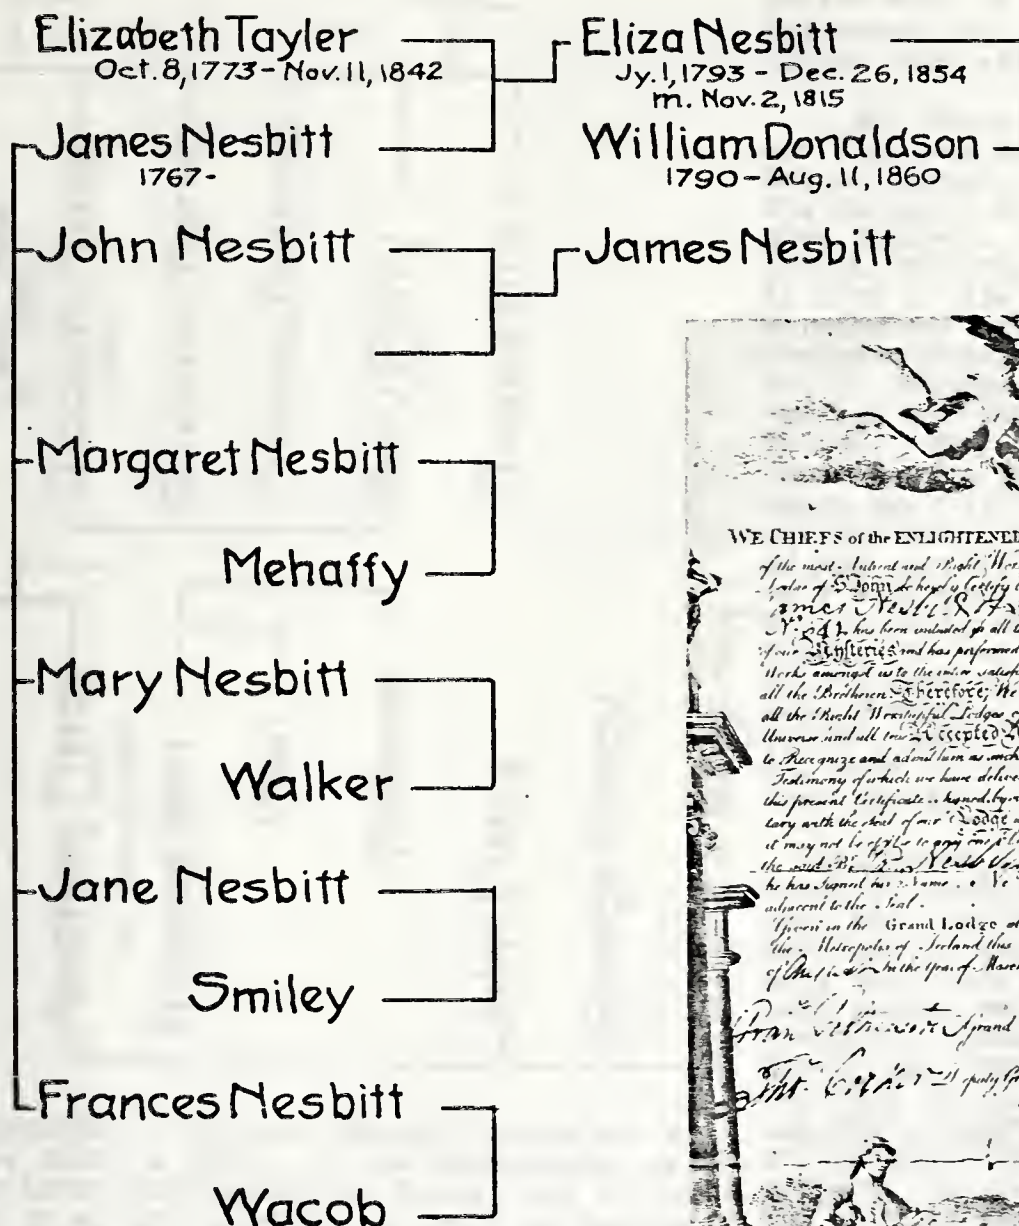 Elizabeth Tayler
Oct. 8, 1773 - Nov. 11, 1842
James Nesbitt
1767-
John Nesbitt
Margaret Nesbitt
Mehaffy
Mary Nesbitt
Walker
Jane Nesbitt
Smiley
Frances Nesbitt
Wacob
Eliza Nesbitt
Jy. 1, 1793 - Dec. 26, 1854
m. Nov. 2, 1815
William Donaldson
1790 - Aug. 11, 1860
James Nesbitt
WE CHIEFS of the ENLIGHTENED
of the most Antient and Right
Lodge of St John do hereby Certify
has been entrusted
of our Mysteries and has performed
Works amongst us to the entire
all the Brethren Therefore, We
all the Right Worshipful Lodges
Universe and all true Accepted
to Recognize and admit him as such
Testimony of which we have
this present Certificate
with the seal of our Lodge
it may not be
the said
he has Signed his Name
adjacent to the Seal.
Given in the Grand Lodge
the Metropolis of Ireland this
in the Year of
Grand
Deputy